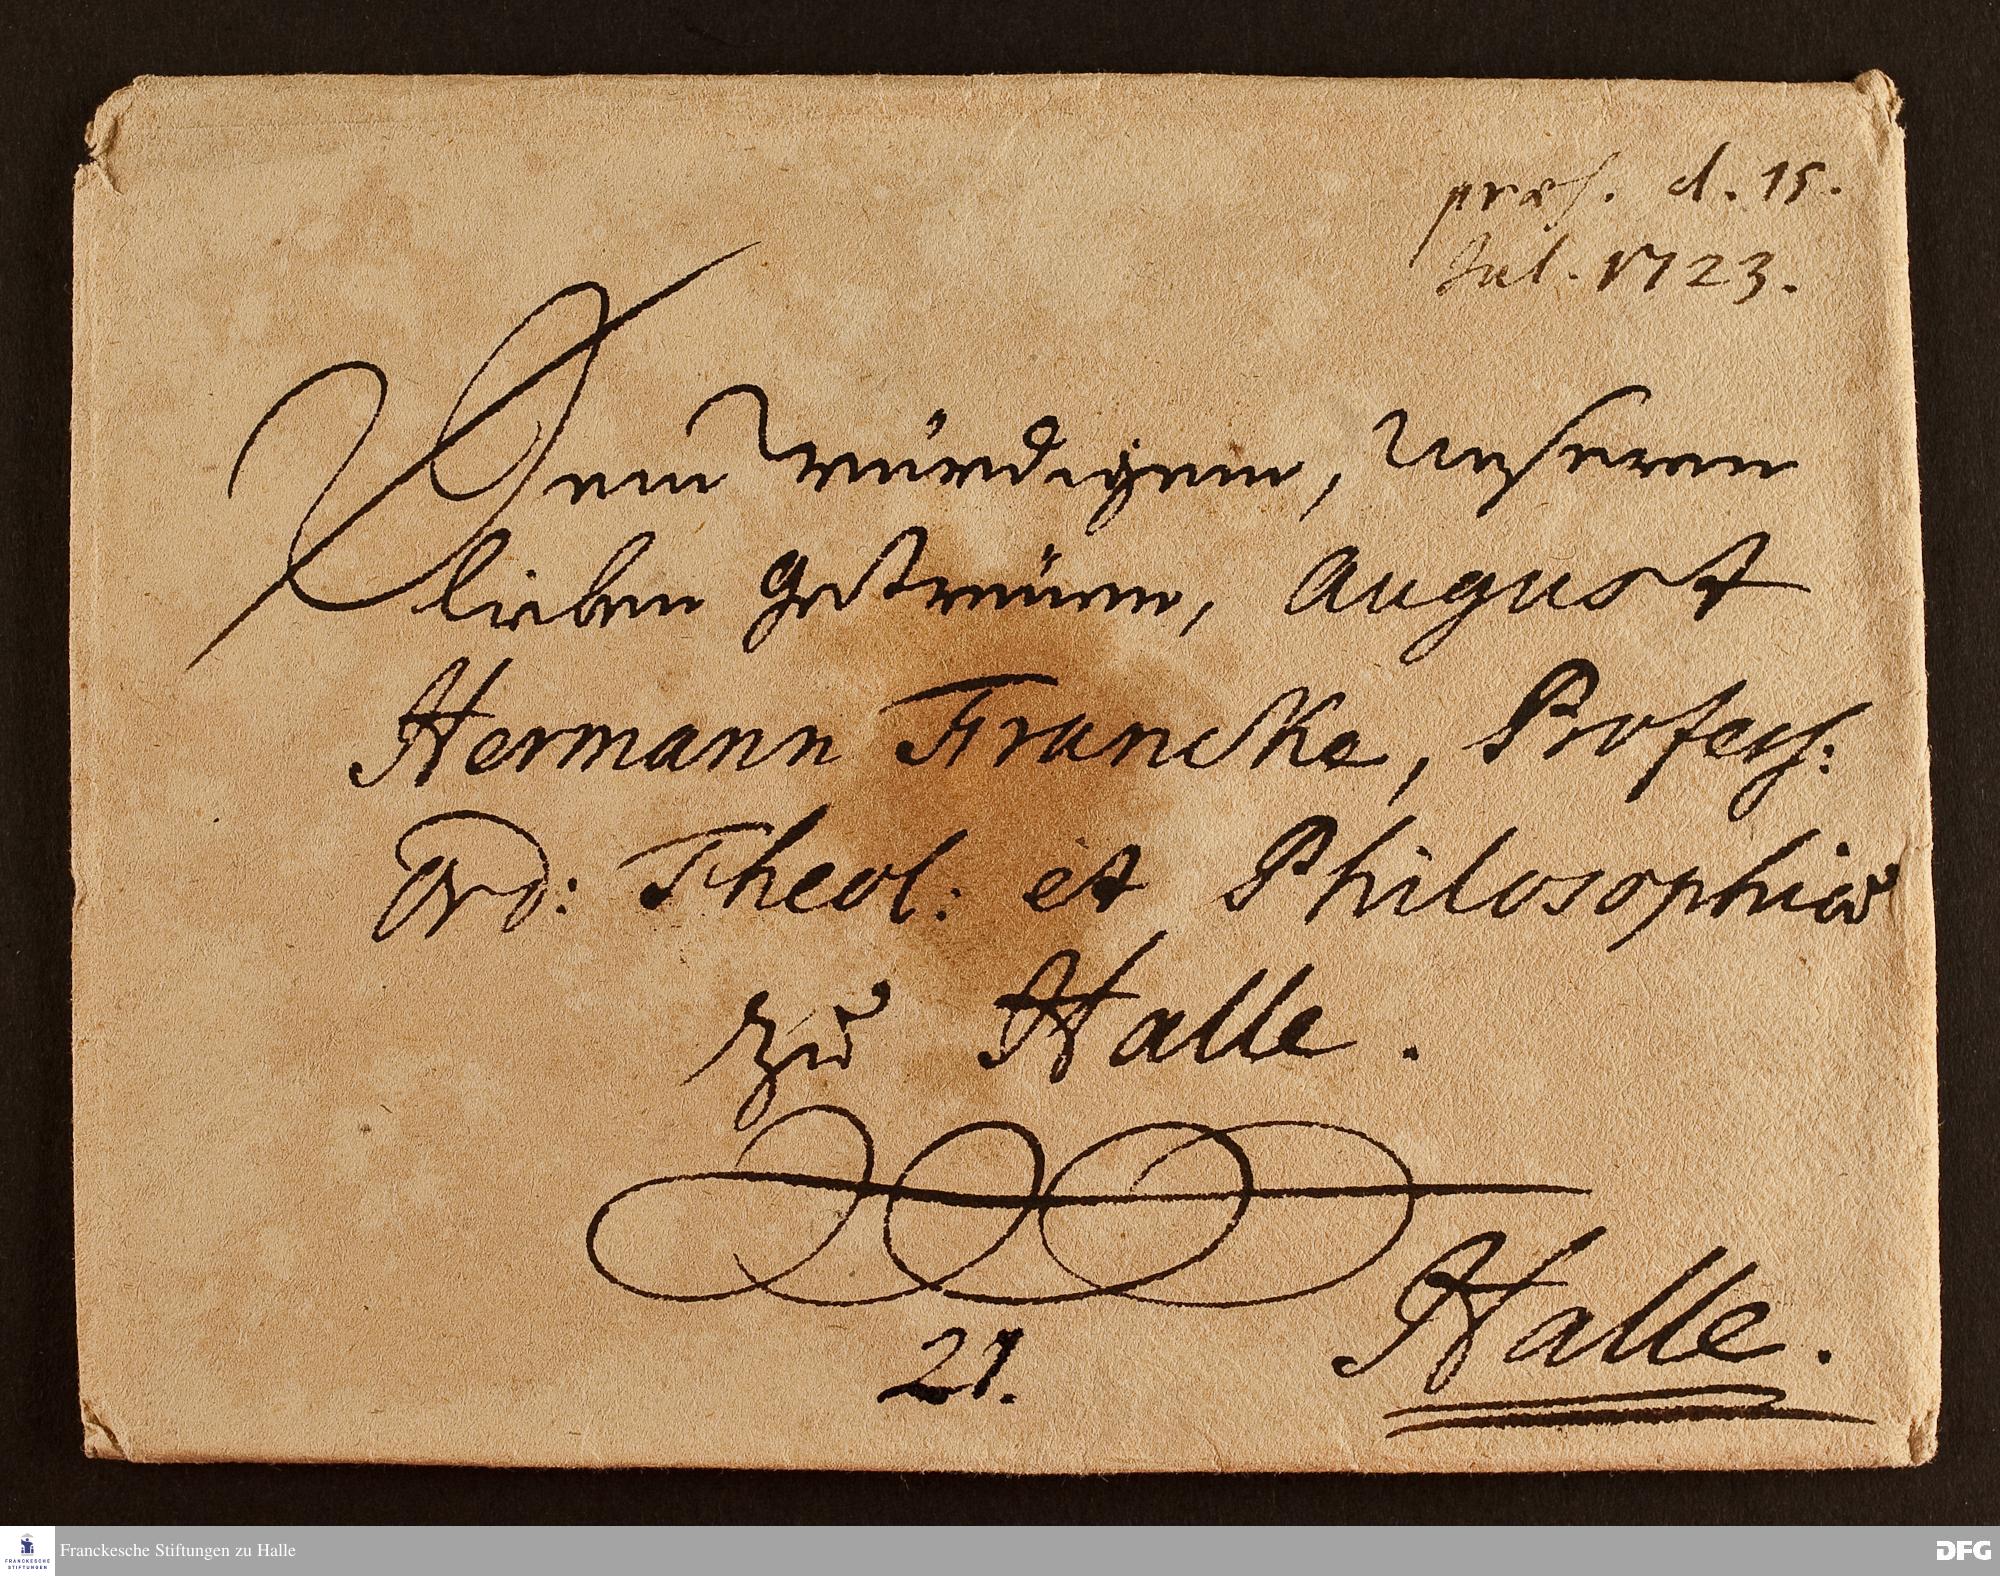 præs. d. 15.
Jul. 1723.
Dem würdigem, Unserem
lieben getreüen, August
Hermann Francke, Profess:
Ord: Theol: et Philosophiæ
zu Halle.
21.
Halle.
FRANCKESCHE
STIFTUNGEN
Franckesche Stiftungen zu Halle
DFG